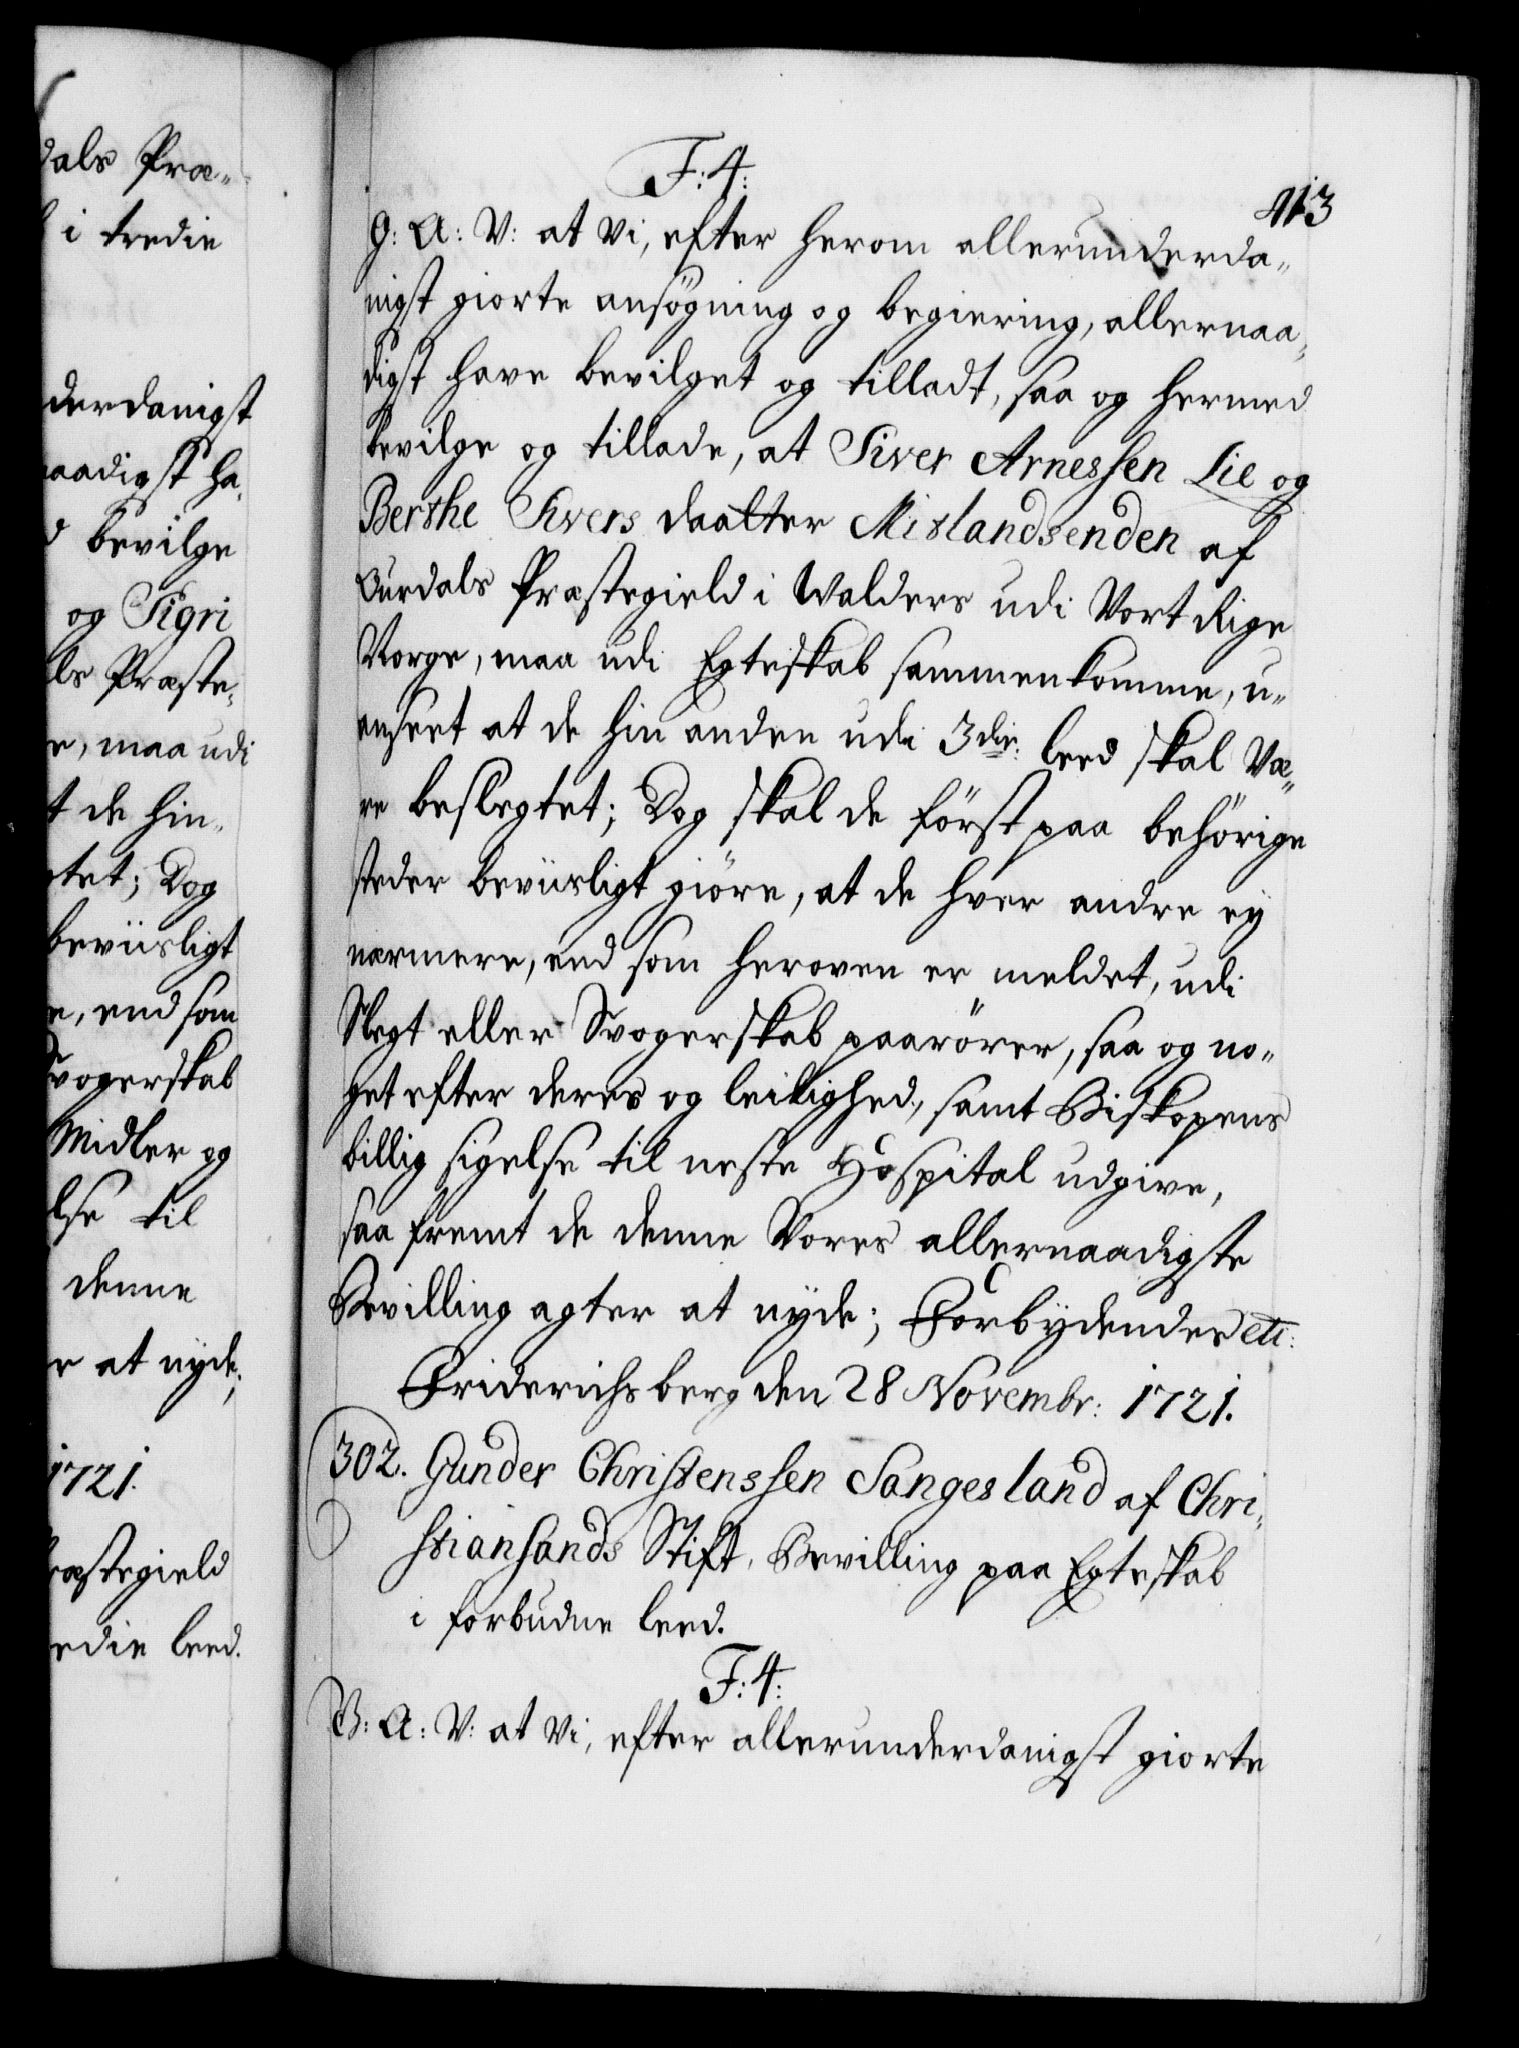 dals Præ-
i tredie
derdanigst
naadigst ha-
bevilge
og Sigri
ls Præste-
e, maa udi
t de hin-
tet; Dog
beviisligt
e, end som
Svogerskab
Midler og
lse til
denne
r at nyde;
1721.
ræstegield
redie leed.
F: 4:
413
G: A: V: at Vi, efter herom allerunderda-
nigst giorte ansøgning og begiering, allernaa-
digst have bevilget og tilladt, saa og hermed
bevilge og tillade, at Siver Arnessen Lie og
Berthe Sivers daatter Mislandsenden af
Aurdals Præstegield i Walders udi Vort Rige
Norge, maa udi Egteskab sammenkomme, u-
anseet at de hin anden udi 3die: leed skal Væ-
re beslegtet; Dog skal de först paa behörige
steder beviisligt giöre, at de hver andre ey
nærmere, end som heroven er meldet, udi
Slegt eller Svogerskab paarörer, saa og no-
get efter deres og leilighed, samt Biskopens
billig sigelse til neste Hospital udgive,
saa fremt de denne Vores allernaadigste
Bevilling agter at nyde; Forbydendes etc:
Friderichsberg den 28 Novembr: 1721.
302. Gunder Christenssen Sangesland af Chri-
stiansands Stift, Bevilling paa Egteskab
i forbudne leed.
F: 4:
G: A: V: at Vi, efter allerunderdanigst giorte